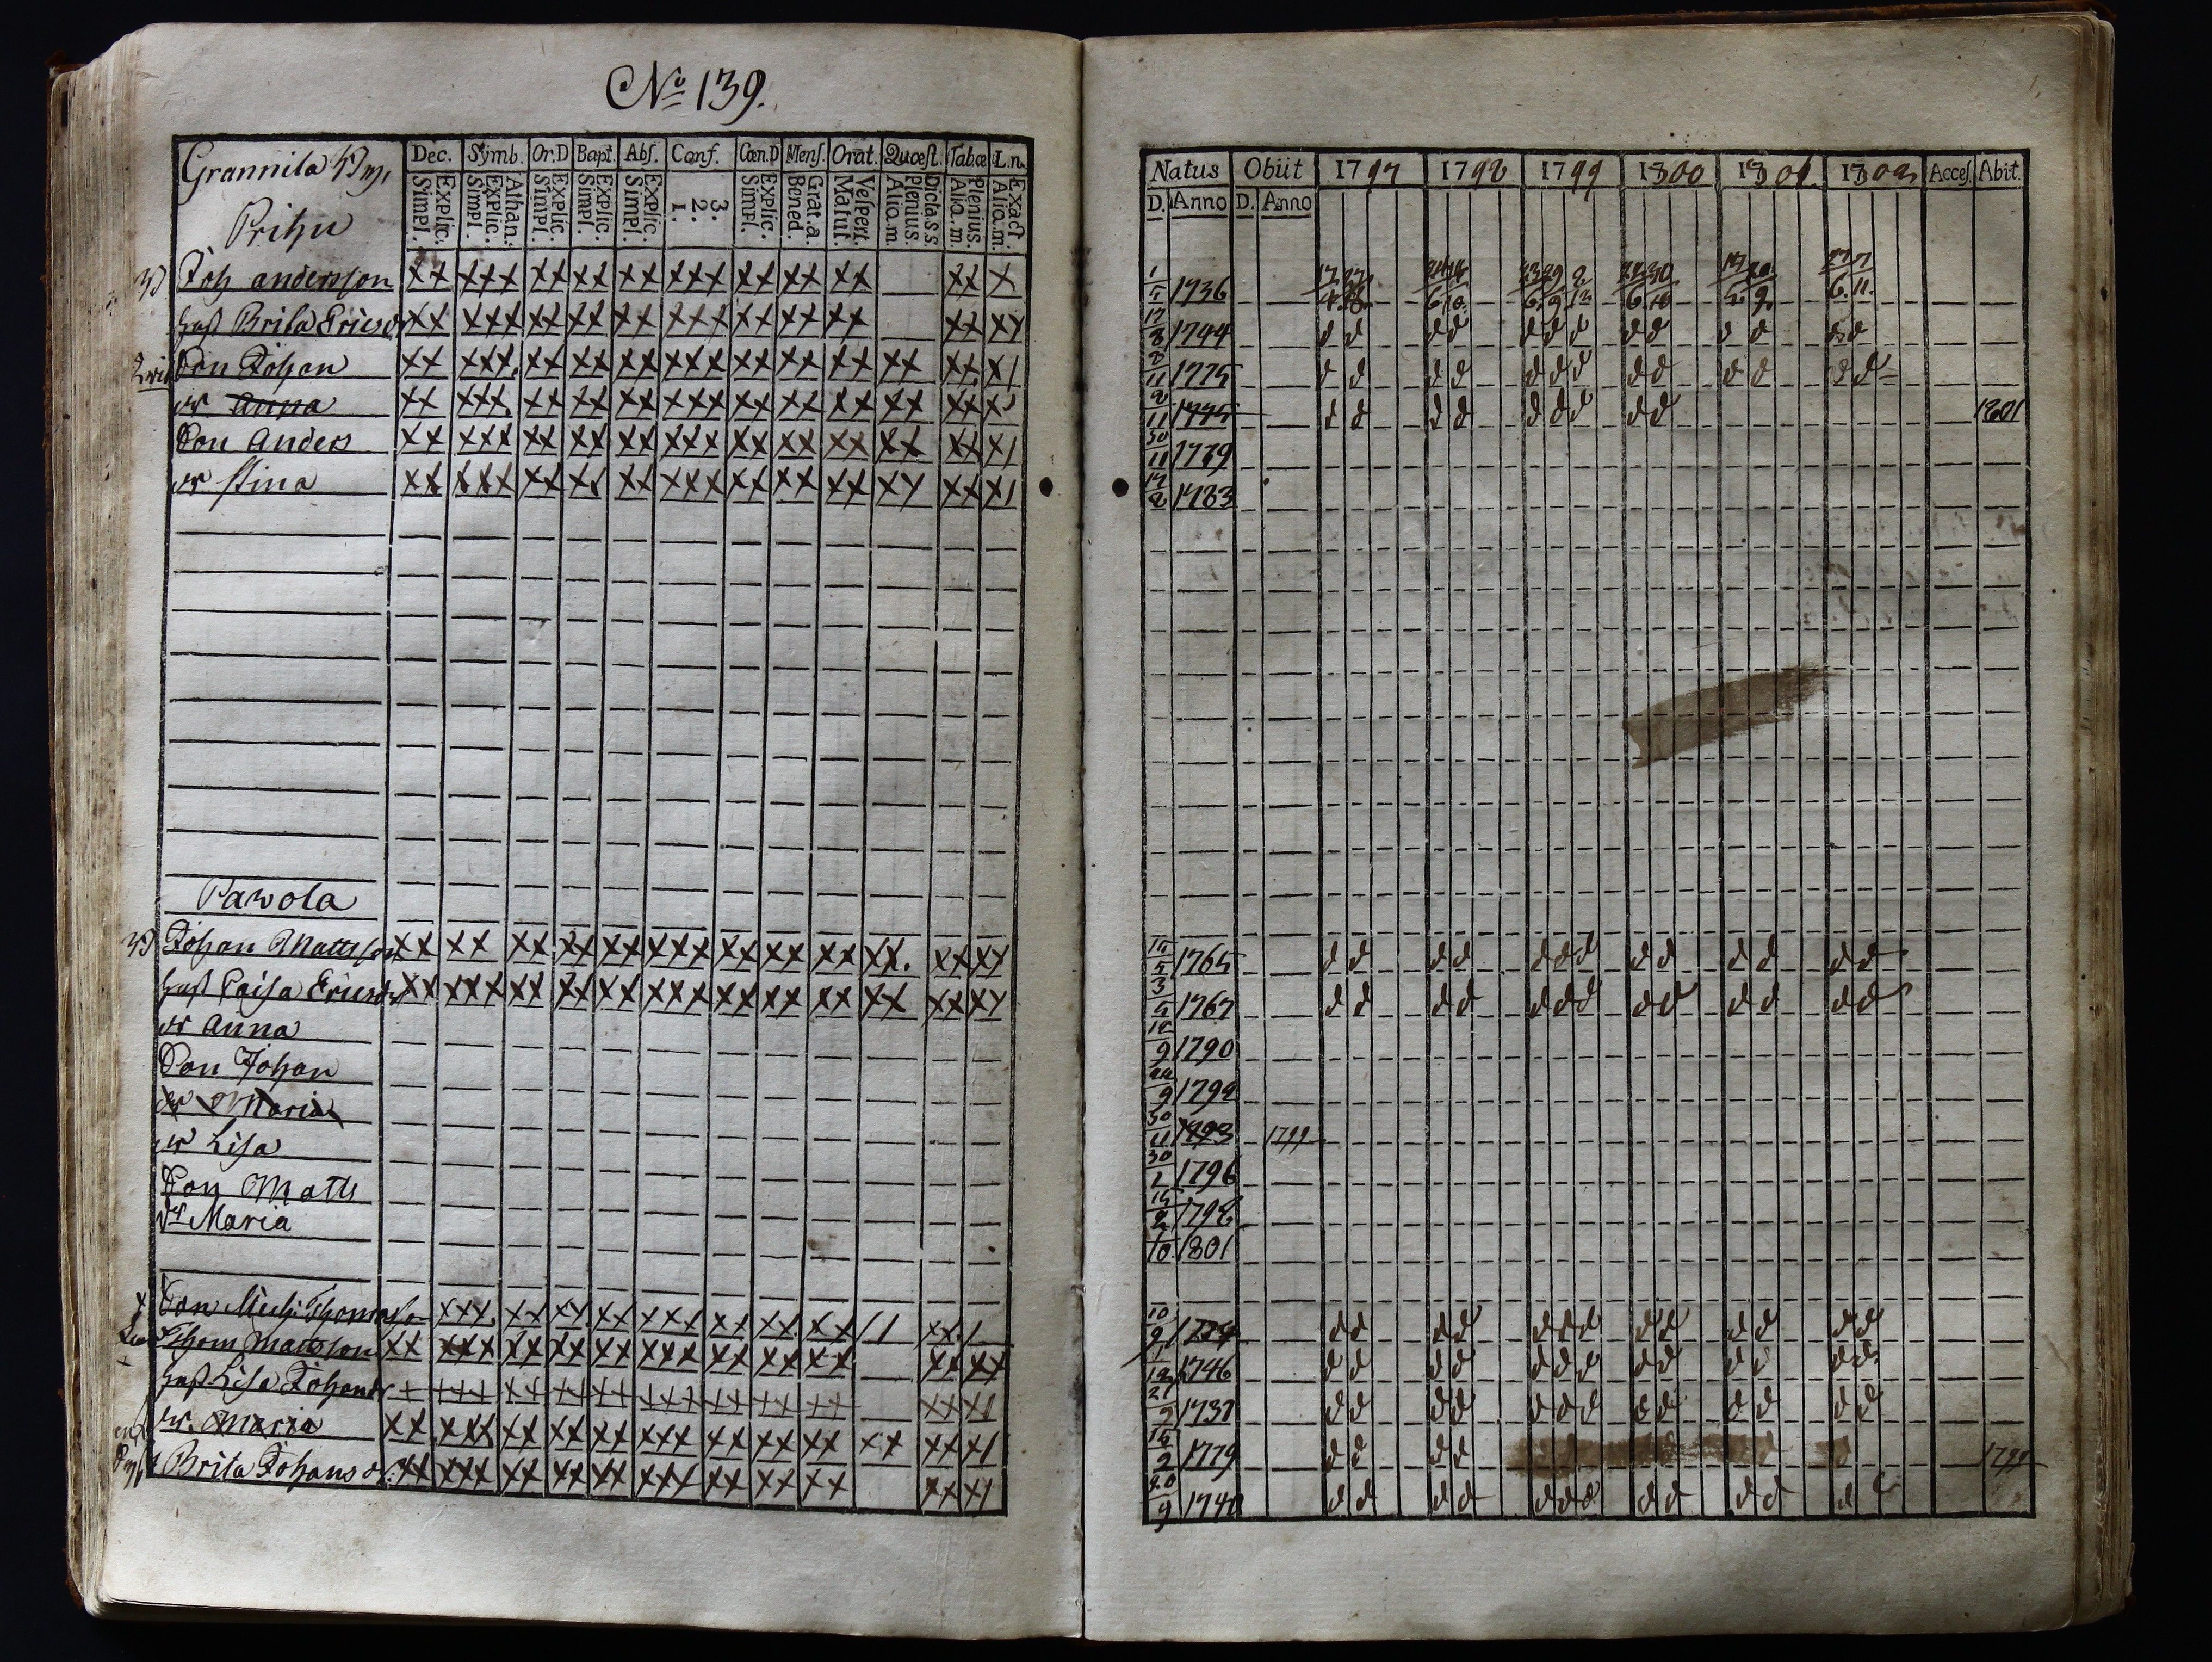 No 139.
Grannila
Dec. Symb. Or.D Bapt. Abs. Conf. Cœn.D Mens. Orat. Quæst. Tabæ L.n.
Explic. Simpl. Athan. Explic. Simpl. Explic. Simpl. Explic. Simpl. Explic. Simpl. 3. 2. 1. Explic. Simpl. Grat.a. Bened. Vespert. Matut. Dicta.s.s. Plenius. Aliq.m. Plenius. Aliq.m. Exact. Aliq.m.
Prihu
Joh andersson xx xxx xx xx xx xxx xx xx xx xx x
hust Brita Ericsd xx xxx xx xx xx xxx xx xx xx xx xx
Son Johan xx xxx. xx xx xx xxx xx xx xx xx xx. x/
dr anna xx xxx. xx xx xx xxx xx xx xx xx xx x
Son anders xx xxx xx xx xx xxx xx xx xx xx xx x/
dr stina xx xxx xx xx xx xxx xx xx xx xx xx x/
Pavola
Johan Mattsson xx xx xx xx xx xxx xx xx xx xx. xx xx
hust Caisa Ericsdr xx xxx xx xx xx xxx xx xx xx xx xx xx
dr anna
Son Johan
dr Maria
dr Lisa
Son Matts
dr Maria
Son Thomasson xxx. xx xx. xx xxx xx xx. xx // xx. /
Thom Mattsson xx xxx xx xx xx xxx xx xx xx xx xx
hust Lisa Johansdr + +++ ++ ++ ++ +++ ++ ++ ++ ++ +/
dr. Maria xx xxx xx xx xx xxx xx xx xx xx xx x/
Brita Johansdr. xx xxx xx xx xx xxx xx xx xx xx x/
Natus Obiit 1797 1798 1799 1800 1801 1802 Acces. Abit.
D. Anno D. Anno
1/5 1736
17/8 1744 d d d d d d d d d d d d d
8/11 1775 d d d d d d d d d d d d d
11 1775 d d d d d d d d d 1801
30/11 1779
1783
15/5 1765 d d d d d d d d d d d d d
3/5 1767 d d d d d d d d d d d d d
9 1790
9 1792
30/11 1793 1799
30/1 1796
1798
10 1801
10/9 d d d d d d d d d d d d d
1/12 1746 d d d d d d d d d d d d d
21/9 1737 d d d d d d d d d d d d d
15/2 1779 d d d d 1799
20/9 1740 d d d d d d d d d d d d